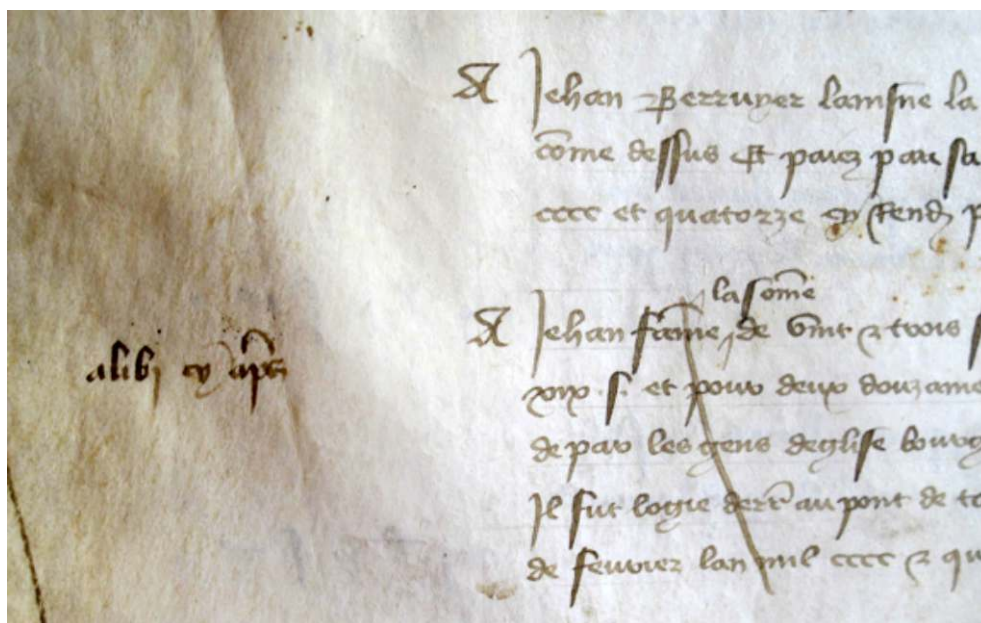 A Jehan Berruyer lainsne la
co͞me dessus Et paiez par sa
cccc et quatorze cy Rend p
la so͞me
A Jehan de vint & trois s
alibi cy ap͞s
xix s. et pour deux douzaine
de par les gens deglise bourg
Il fut logie au pont de to
de feuvrier lan mil cccc & qu